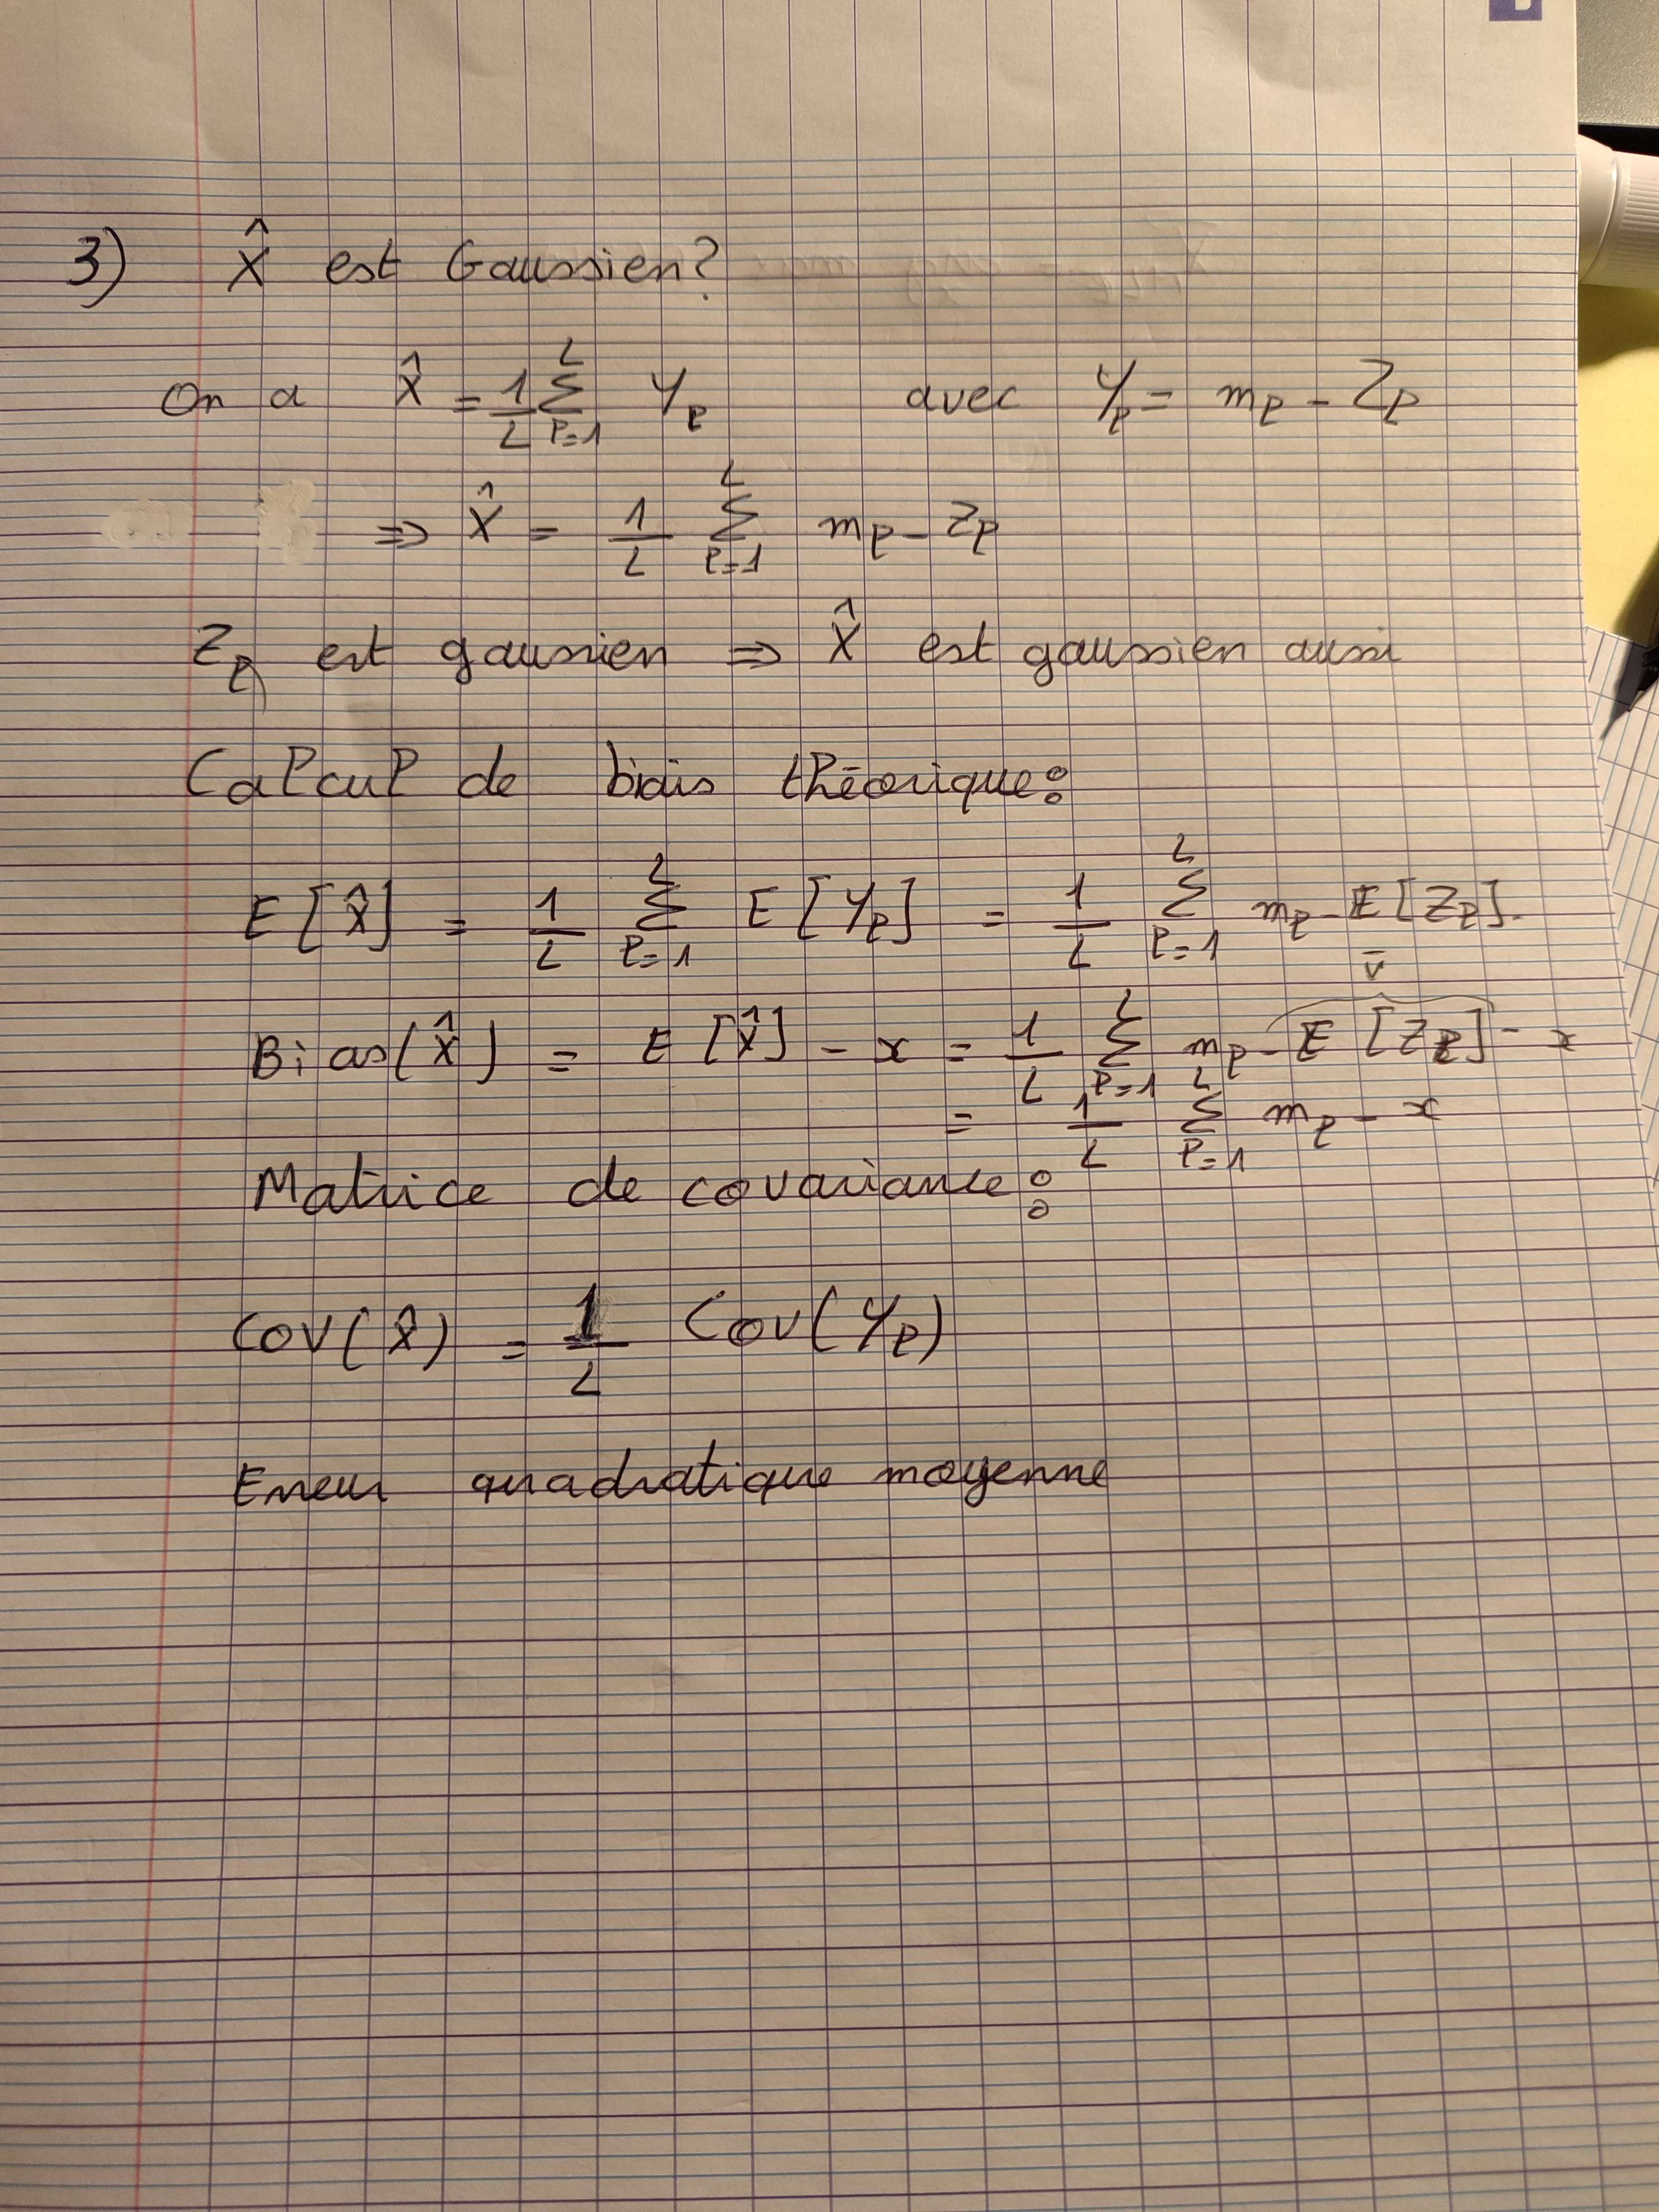 3) X̂ est Gaussien?
On a X̂ = 1/L Σ_{l=1}^{L} Y_l avec Y_l = m_l - Z_l
⇒ X̂ = 1/L Σ_{l=1}^{L} m_l - Z_l
Z_l est gaussien ⇒ X̂ est gaussien aussi
Calcul de biais théorique:
E[X̂] = 1/L Σ_{l=1}^{L} E[Y_l] = 1/L Σ_{l=1}^{L} m_l - E[Z_l].
Bias(X̂) = E[X̂] - x = 1/L Σ_{l=1}^{L} m_l - E[Z_l] - x
= 1/L Σ_{l=1}^{L} m_l - x
Matrice de covariance:
Cov(X̂) = 1/L Cov(Y_l)
Erreur quadratique moyenne